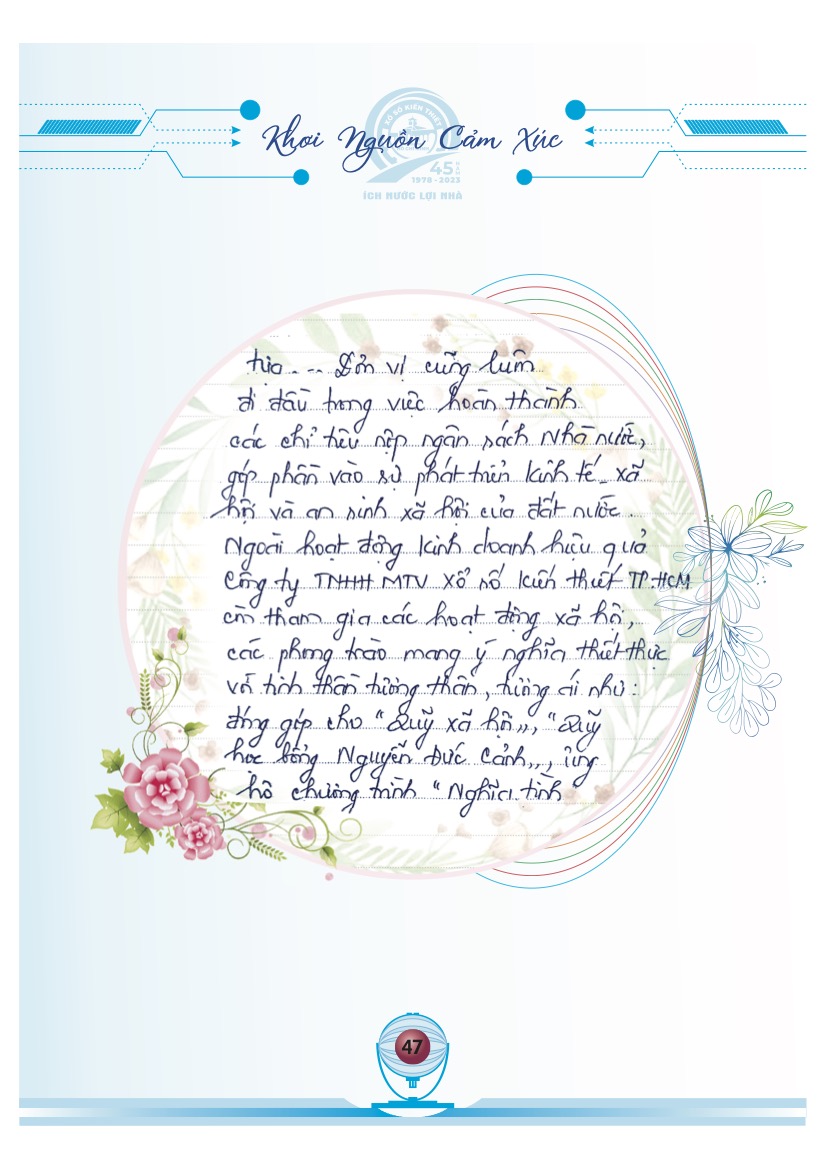 Khơi Nguồn Cảm Xúc
XỔ SỐ KIẾN THIẾT
45 NĂM
1978 - 2023
ÍCH NƯỚC LỢI NHÀ
tựa... Đơn vị cũng luôn
đi đầu trong việc hoàn thành
các chỉ tiêu nộp ngân sách Nhà nước,
góp phần vào sự phát triển kinh tế - xã
hội và an sinh xã hội của đất nước.
Ngoài hoạt động kinh doanh hiệu quả
Công ty TNHH MTV Xổ số kiến thiết TP.HCM
còn tham gia các hoạt động xã hội,
các phong trào mang ý nghĩa thiết thực
với tinh thần tương thân, tương ái như:
đóng góp cho "Quỹ xã hội", "Quỹ
học bổng Nguyễn Đức Cảnh", ủng
hộ chương trình "Nghĩa tình
47